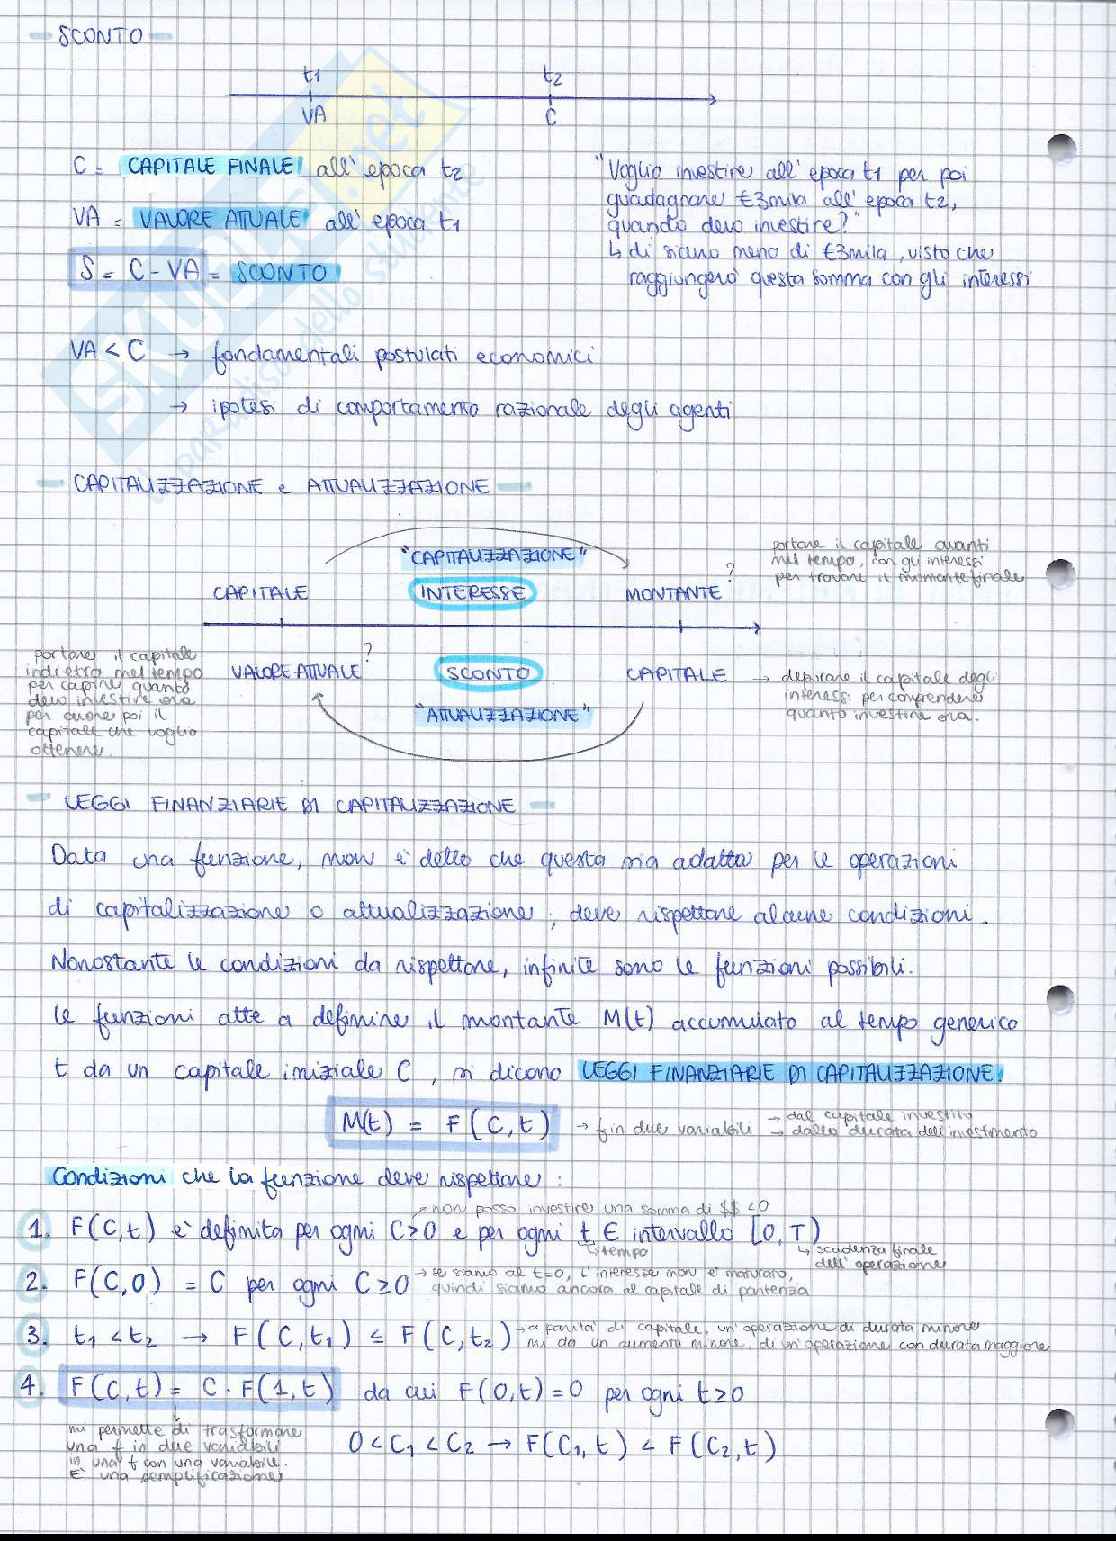 SCONTO
t1 t2
VA C
C = CAPITALE FINALE all'epoca t2
VA = VALORE ATTUALE all'epoca t1
S = C - VA = SCONTO
"Voglio investire all'epoca t1 per poi
guadagnare €3mila all'epoca t2,
quando devo investire?"
↳ di sicuro meno di €3mila, visto che
raggiungerò questa somma con gli interessi
VA < C → fondamentali postulati economici
→ ipotesi di comportamento razionale degli agenti
CAPITALIZZAZIONE e ATTUALIZZAZIONE
"CAPITALIZZAZIONE"
CAPITALE INTERESSE MONTANTE ?
portare il capitale avanti
nel tempo, con gli interessi
per trovare il montante finale
VALORE ATTUALE ? SCONTO CAPITALE
"ATTUALIZZAZIONE"
portare il capitale
indietro nel tempo
per capire quanto
devo investire ora
per avere poi il
capitale che voglio
ottenere.
→ depurare il capitale degli
interessi per comprendere
quanto investire ora.
LEGGI FINANZIARIE DI CAPITALIZZAZIONE
Data una funzione, non è detto che questa sia adatta per le operazioni
di capitalizzazione o attualizzazione; deve rispettare alcune condizioni.
Nonostante le condizioni da rispettare, infinite sono le funzioni possibili.
Le funzioni atte a definire il montante M(t) accumulato al tempo generico
t da un capitale iniziale C, si dicono LEGGI FINANZIARIE DI CAPITALIZZAZIONE.
M(t) = F(C,t) → f in due variabili
→ dal capitale investito
→ dalla durata dell'investimento
Condizioni che la funzione deve rispettare:
→ non posso investire una somma di $$ < 0
1. F(C,t) è definita per ogni C>0 e per ogni t ∈ intervallo [0,T)
↳ tempo
↳ scadenza finale
dell'operazione
2. F(C,0) = C per ogni C≥0 → se siamo al t=0, l'interesse non è maturato,
quindi siamo ancora al capitale di partenza
3. t1 < t2 → F(C,t1) ≤ F(C,t2) → a parità di capitale, un'operazione di durata minore
mi da un aumento minore, di un'operazione con durata maggiore
4. F(C,t) = C · F(1,t) da cui F(0,t) = 0 per ogni t≥0
mi permette di trasformare
una f in due variabili
in una f con una variabile.
È una semplificazione
0 < C1 < C2 → F(C1,t) < F(C2,t)